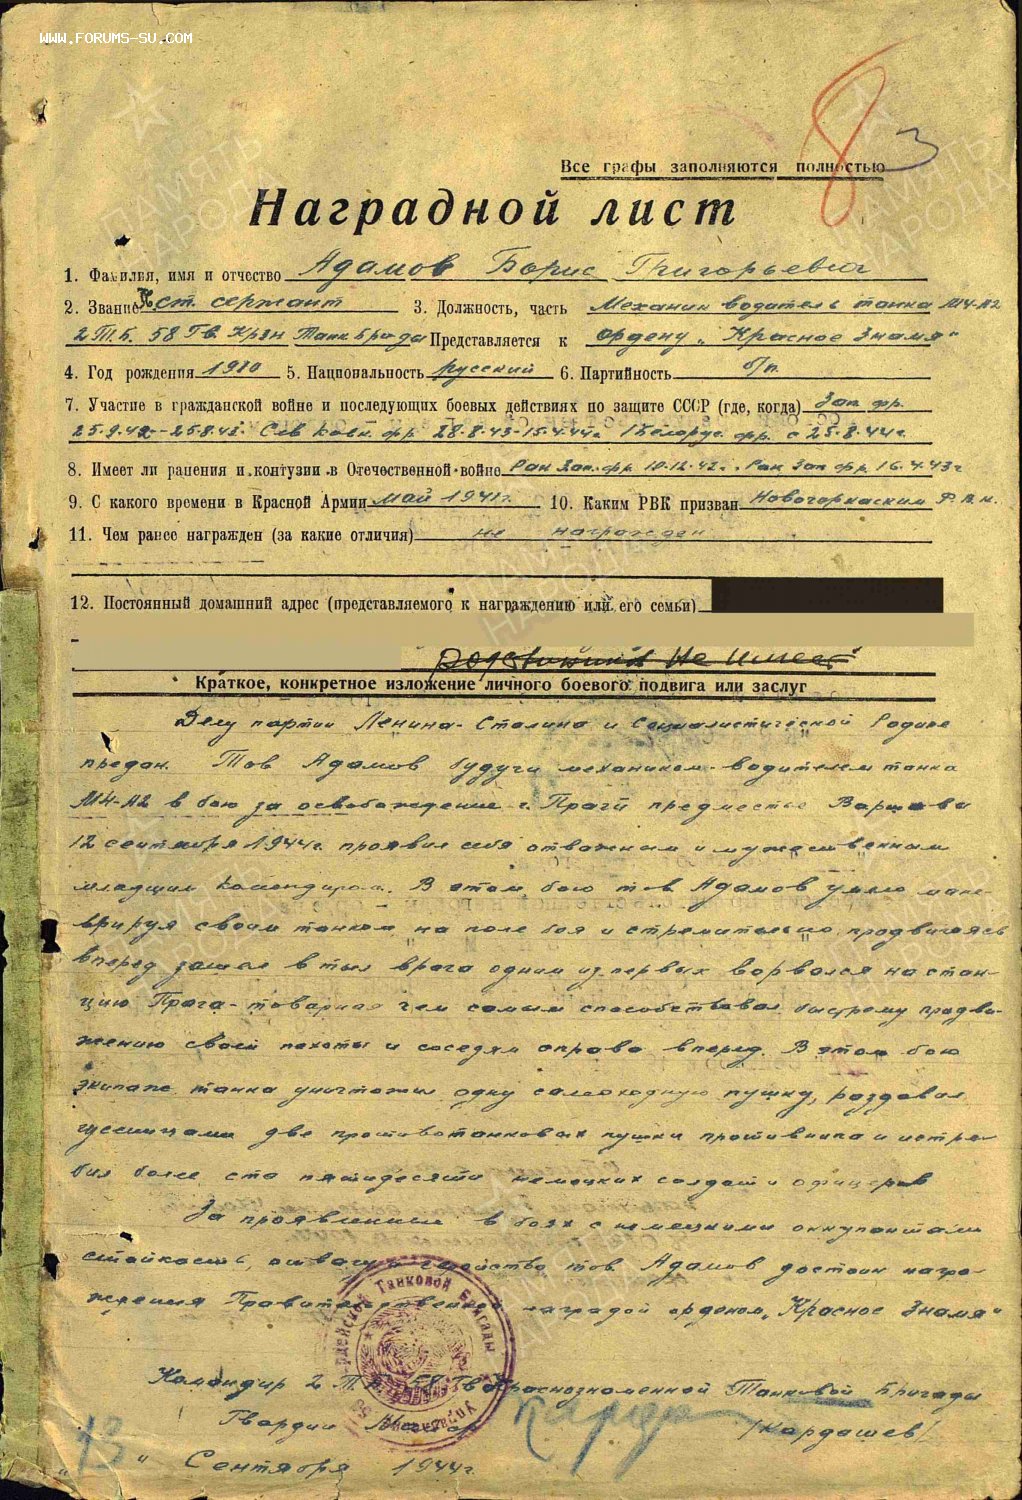 WWW.FORUMS-SU.COM
8 3
Все графы заполняются полностью
Наградной лист
1. Фамилия, имя и отчество Адамов Борис Григорьевич
2. Звание ст. сержант 3. Должность, часть Механик водитель танка М4-А2
2 Т.Б. 58 Гв. Крзн Танк Бригады Представляется к ордену „Красное Знамя"
4. Год рождения 5. Национальность русский 6. Партийность б/п.
7. Участие в гражданской войне и последующих боевых действиях по защите СССР (где, когда) Зап. фр.
25.9.42 - 25.8.43. Сев Кавк. фр. 28.8.43-15.4.44г. 1 Белорус. фр. с 25.8.44г.
8. Имеет ли ранения и контузии в Отечественной войне Ран Зап. фр. 10.12.42г. Ран Зап фр. 16.4.43г
9. С какого времени в Красной Армии май 1941г. 10. Каким РВК призван
11. Чем ранее награжден (за какие отличия) не награжден
12. Постоянный домашний адрес (представляемого к награждению или его семьи)
родственников не имеет
Краткое, конкретное изложение личного боевого подвига или заслуг
Делу партии Ленина-Сталина и Социалистической Родине
предан. Тов Адамов будучи механиком-водителем танка
М4-А2 в бою за освобождение г. Праги предместье Варшавы
12 сентября 1944г. проявил себя отважным и мужественным
младшим командиром. В этом бою тов Адамов умело мане-
врируя своим танком на поле боя и стремительно продвигаясь
вперед зашел в тыл врага одним из первых ворвался на стан-
цию Прага-товарная чем самым способствовал быстрому продви-
жению своей пехоты и соседям справа вперед. В этом бою
экипаж танка уничтожил одну самоходную пушку, раздавил
гусеницами две противотанковых пушки противника и истре-
бил более ста пятидесяти немецких солдат и офицеров
За проявленные в боях с немецкими оккупантами
стойкость, отвагу и геройство тов Адамов достоин награ-
ждения Правительственной наградой орденом „Красное Знамя"
Командир 2 Т.Б. 58 Гв Краснознаменной Танковой Бригады
Гвардии Майор /Кардашев/
„13" Сентября 1944г.